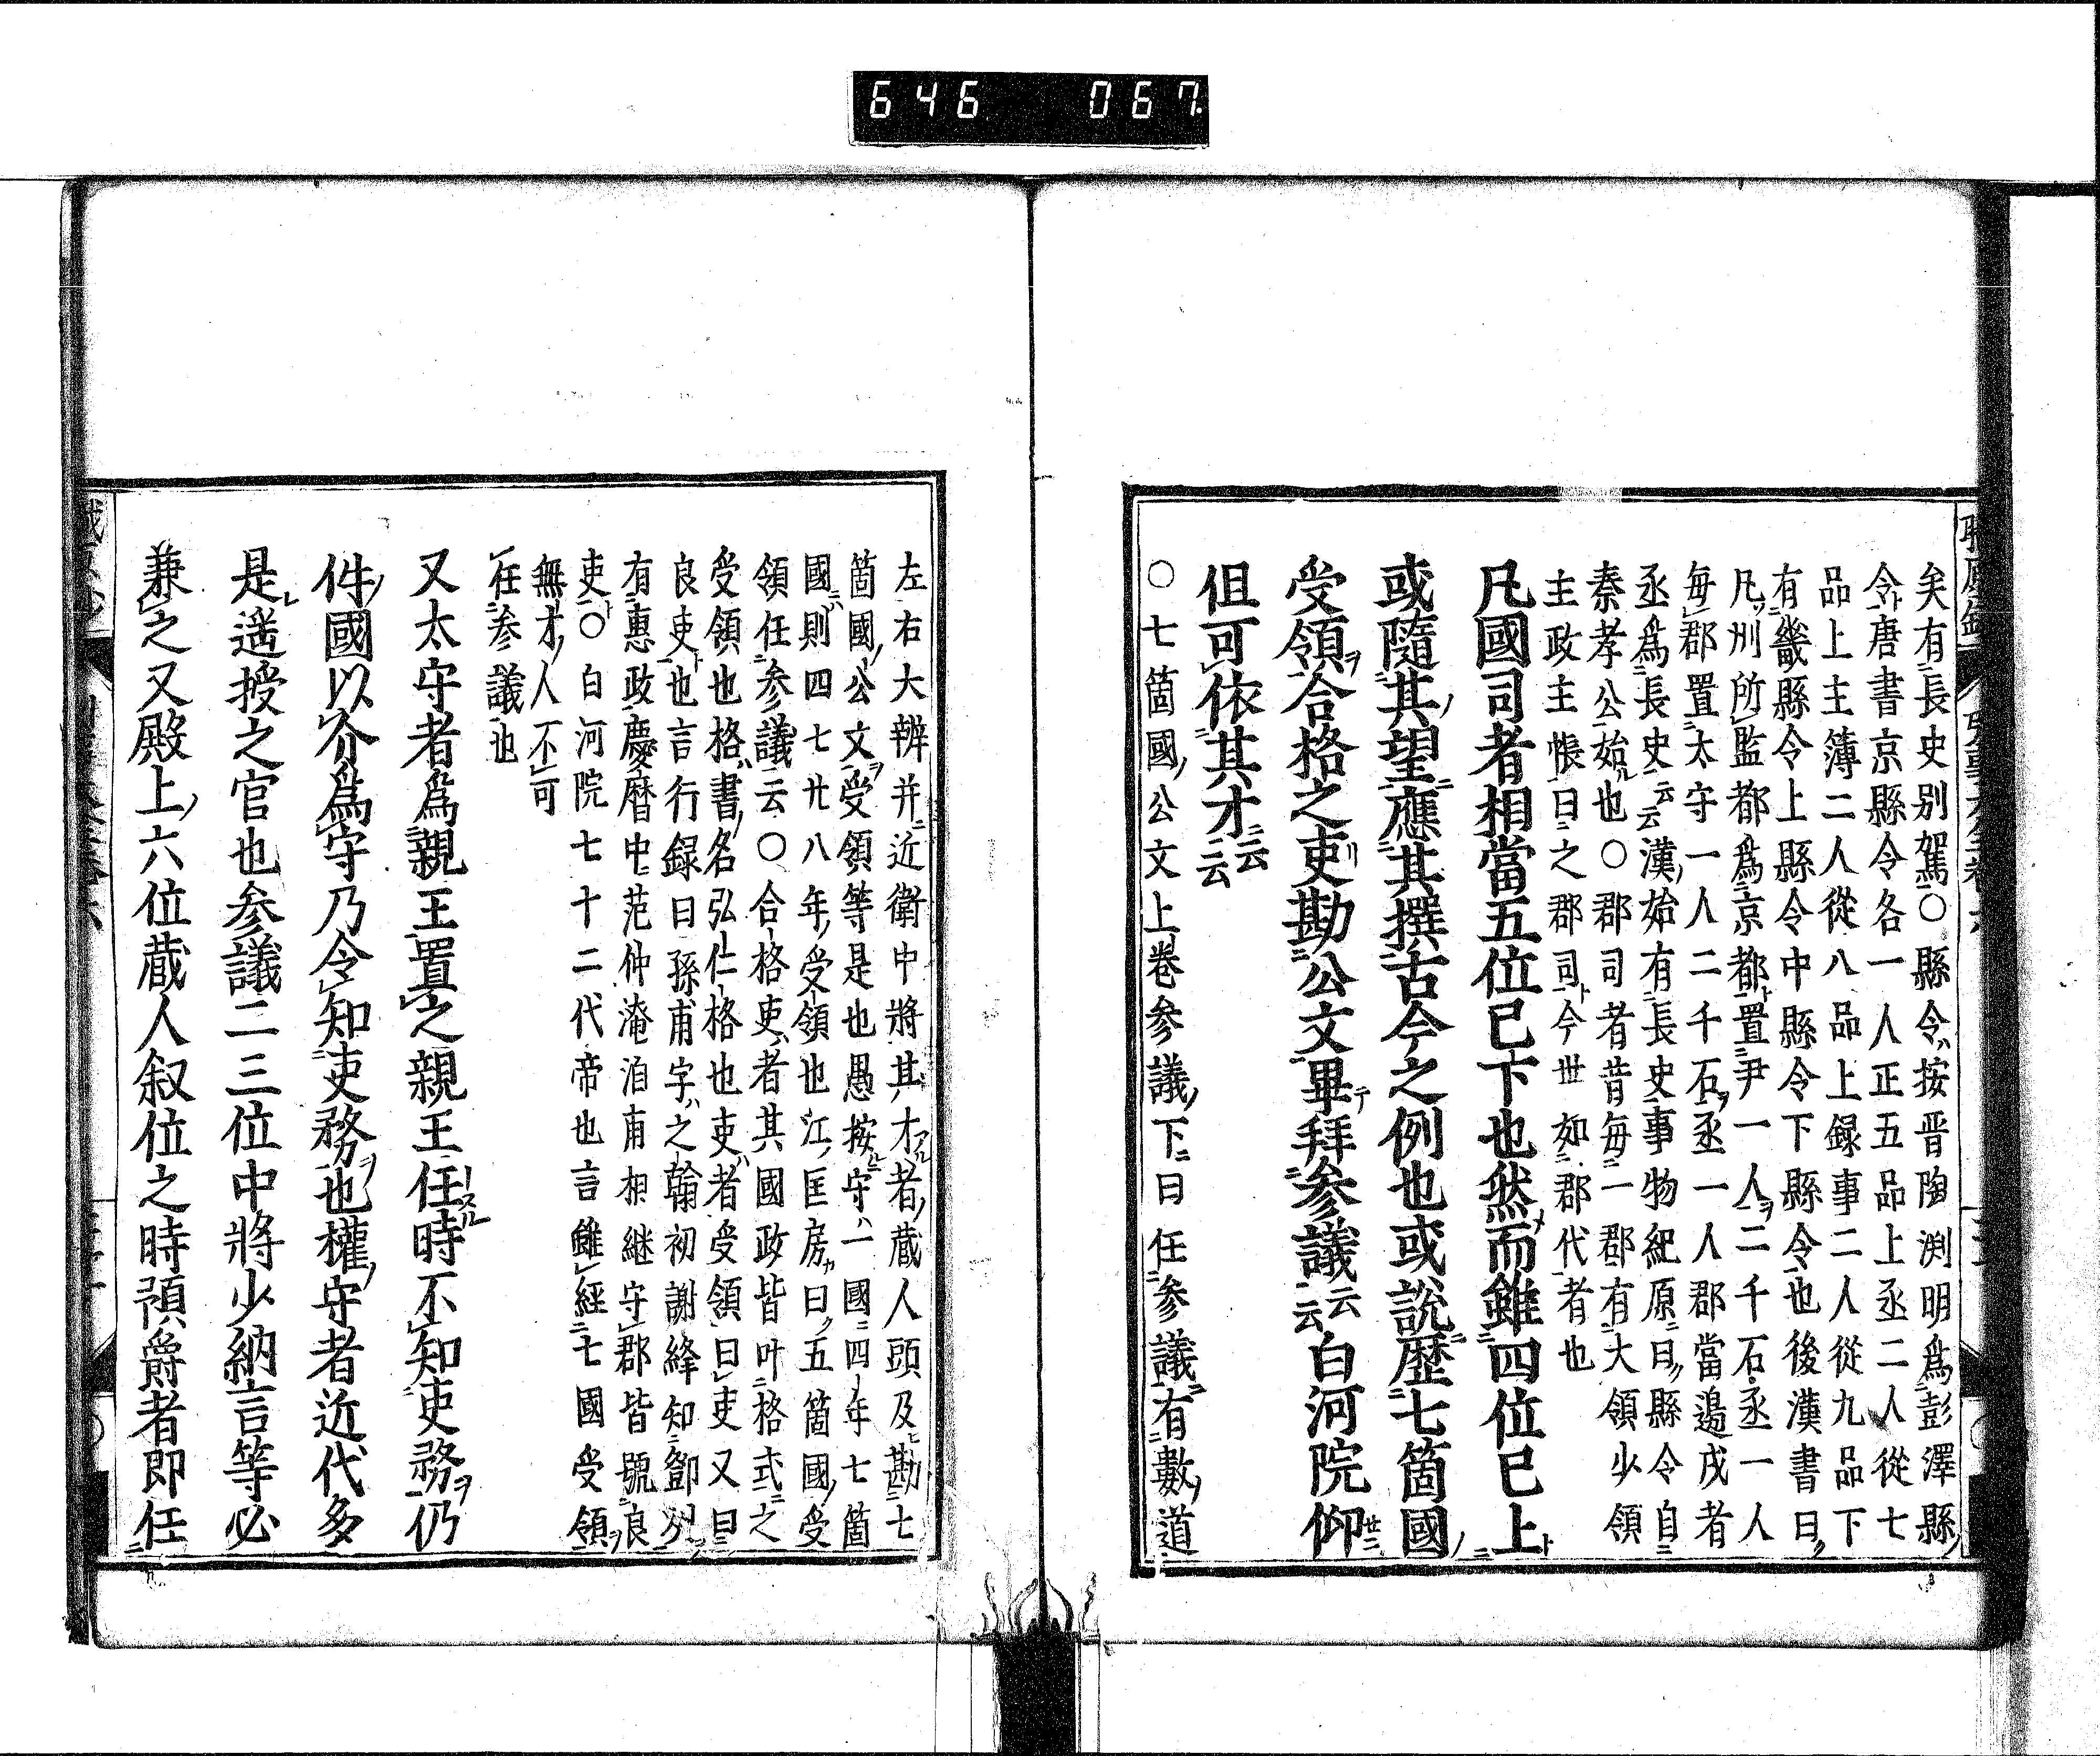 646 067
矣有長史別駕○縣令按晋陶渕明爲彭澤縣
令唐書京縣令各一人正五品上丞二人從七
品上主簿二人從八品上録事二人從九品下
有畿縣令上縣令中縣令下縣令也後漢書曰
凡州所監都爲京都置尹一人二千石丞一人
毎郡置太守一人二千石丞一人郡當邉戍者
丞爲長史云云漢始有長史事物紀原曰縣令自
秦孝公始也○郡司者昔毎一郡有大領少領
主政主帳曰之郡司今世如郡代者也
凡國司者相當五位已下也然而雖四位已上
或隨其望應其撰古今之例也或説歴七箇國
受領合格之吏勘公文畢拜参議云云白河院仰
但可依其才云云
○七箇國公文上巻参議下曰任参議有數道
左右大辨并近衛中將其才者蔵人頭及勘七
箇國公文受領等是也愚按守一國四年七箇
國則四七廿八年受領也江匡房曰五箇國受
領任参議云○合格吏者其國政皆叶格式之
受領也格書名弘仁格也吏者受領曰吏又曰
良吏也言行録曰孫甫字之翰初謝絳知鄧州
有惠政慶暦中范仲淹洎甫相継守郡皆號良
吏○白河院七十二代帝也言雖経七國受領
無才人不可
任参議也
又太守者爲親王置之親王任時不知吏務仍
件國以介爲守乃令知吏務也權守者近代多
是遥授之官也参議二三位中將少納言等必
兼之又殿上六位蔵人叙位之時預爵者即任